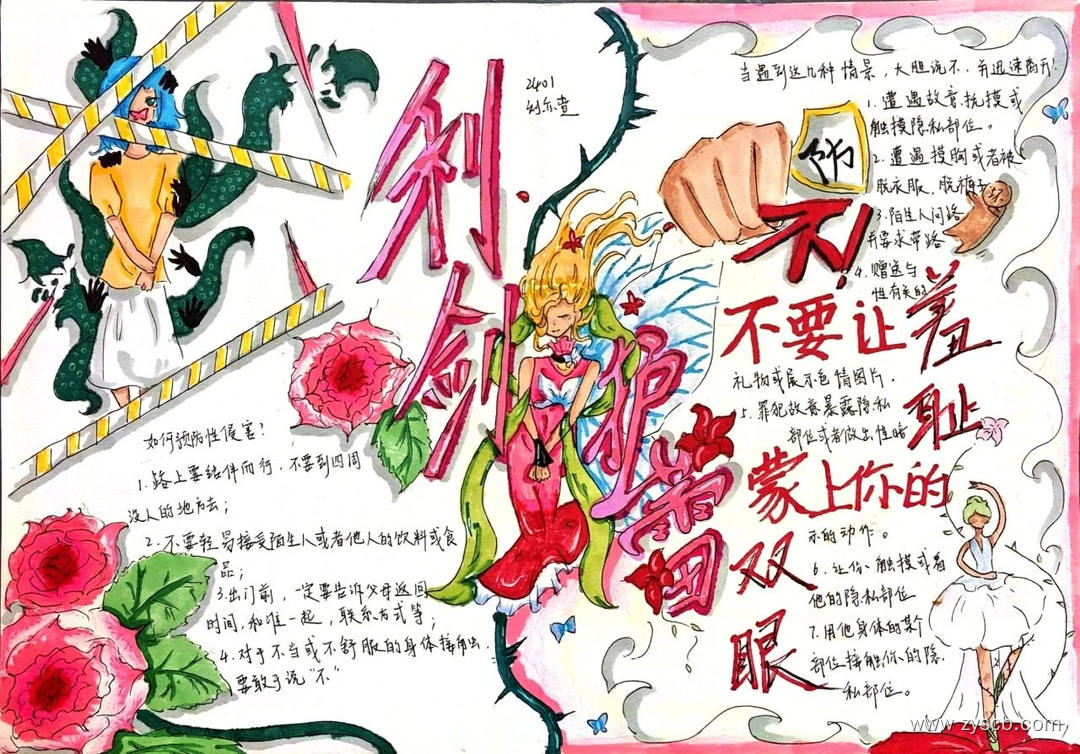 利剑护蕾
2401
如何预防性侵害?
1.路上要结伴而行,不要到四周
没人的地方去;
2.不要轻易接受陌生人或者他人的饮料或食
品;
3.出门前,一定要告诉父母返回
时间,和谁一起,联系方式等;
4.对于不当或不舒服的身体接触出.
要敢于说"不"
当遇到这几种情景,大胆说不,并迅速离开!
1.遭遇故意抚摸或
触摸隐私部位。
2.遭遇摸胸或者被
脱衣服、脱裤子
3.陌生人问路
并要求带路
4.赠送与
性有关的
礼物或展示色情图片.
5.罪犯故意暴露隐私
部位或者做出性暗
示的动作。
6.让你触摸或者
他的隐私部位
7.用他身体的某个
部位接触你的隐
私部位。
不!
不要让羞耻
蒙上你的
双眼
www.zyscb.com